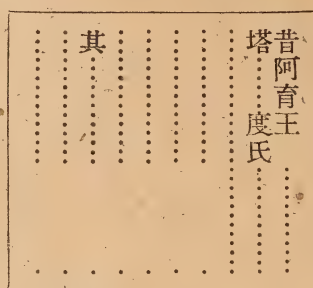 昔阿育王……
塔……度氏……
其……